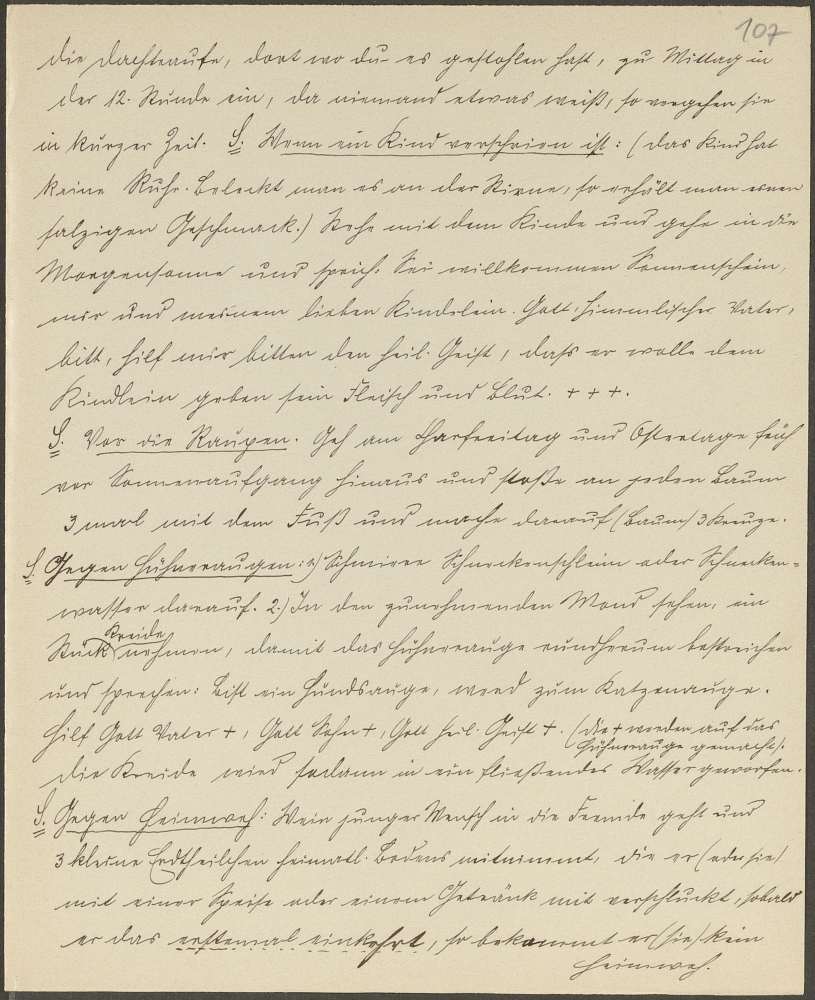 107
die Dachtraufe, dort wo du es gestohlen hast, zu Mittag in
der 12. Stunde ein, da niemand etwas weiß, so vergehen sie
in kurzer Zeit. S. Wenn ein Kind verschrien ist: (das Kind hat
keine Ruhe. Beleckt man es an der Stirne, so erhält man einen
salzigen Geschmack.) Stehe mit dem Kinde und gehe in die
Morgensonne und sprich: Sei willkommen Sonnenschein,
mir und meinem lieben Kindelein. Gott, himmlischer Vater,
bitt, hilf mir bitten den heil. Geist, daß er wolle dem
Kindlein geben sein Fleisch und Blut. + + +.
S. Vor die Raupen. Geh am Charfreitag und Ostertage früh
vor Sonnenaufgang hinaus und stoße an jeden Baum
3 mal mit dem Fuß und mache darauf (Baum) 3 Kreuze.
S. Gegen Hühneraugen: 1.) Schmiere Schneckenschleim oder Schnecken-
wasser darauf. 2.) In den zunehmenden Mond sehen, ein
Stück Kreide nehmen, damit das Hühnerauge rundherum bestreichen
und sprechen: Bist ein Hundsauge, werd zum Katzenauge.
Hilf Gott Vater +, Gott Sohn +, Gott heil. Geist +. (die + werden auf das
Hühnerauge gemacht).
Die Kreide wird sodann in ein fließendes Wasser geworfen.
S. Gegen Heimweh: Wein junger Mensch in die Fremde geht und
3 kleine Erdtheilchen heimatl. Bodens mitnimmt, die er (oder sie)
mit einer Speise oder einem Getränk mit verschluckt, sobald
er das erstemal einkehrt, so bekommt er (sie) kein
Heimweh.